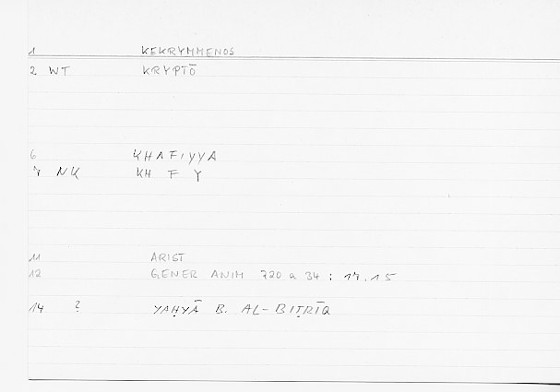 1 KEKRYMMENOS
2 WT KRYPTŌ
6 KHAFIYYA
7 NK KH F Y
11 ARIST
12 GENER ANIM 720 a 34 : 17.15
14 ? YAḤYĀ B. AL-BIṬRĪQ